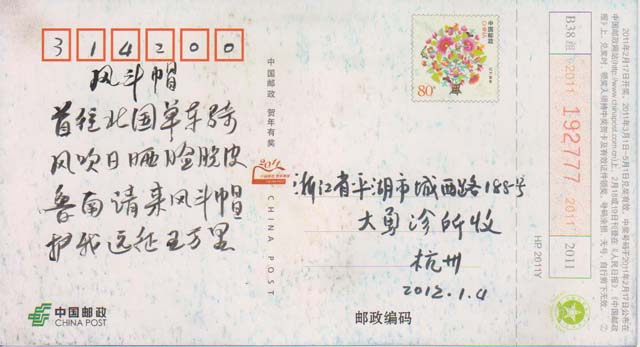 314200
风斗帽
首往北国单车骑
风吹日晒脸脱皮
鲁南请来风斗帽
护我远征五万里
中国邮政
80分
中国邮政 贺年有奖
2011
CHINA POST
浙江省平湖市城西路188号
大勇诊所收
杭州
2012.1.4
中国邮政
CHINA POST
邮政编码
B38组
2011
192777
2011
2011
HP 2011Y